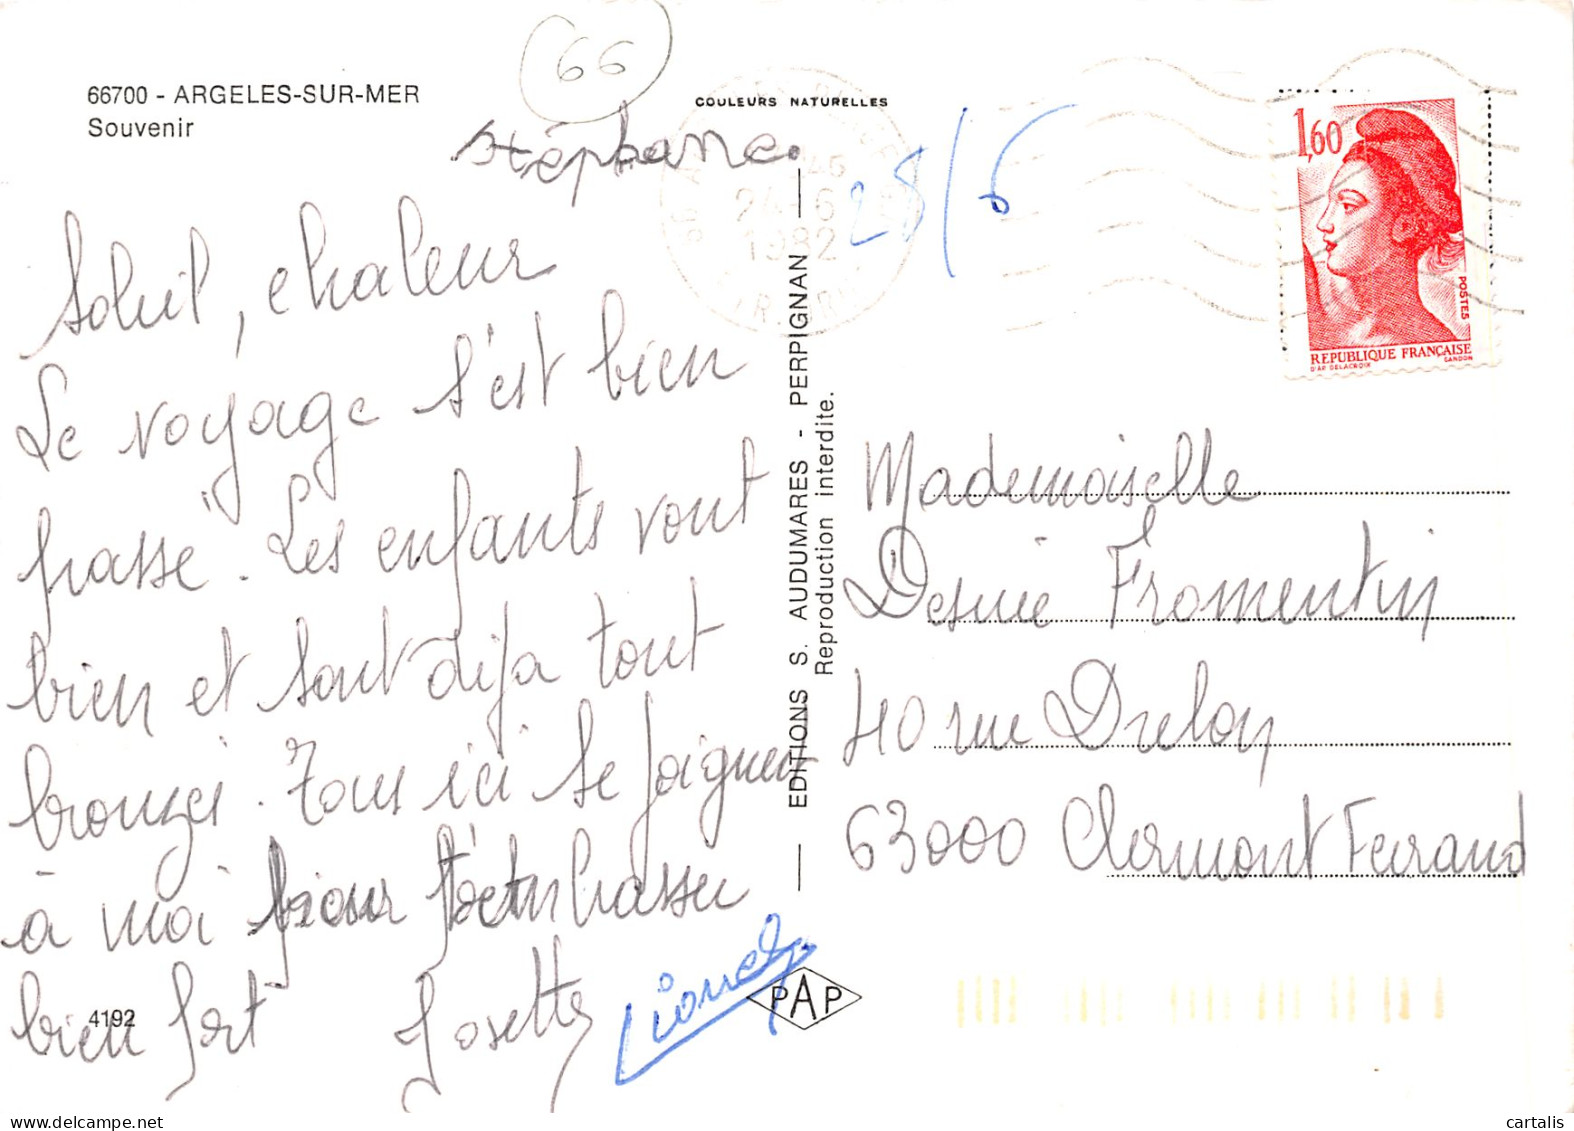 66
66700 - ARGELES-SUR-MER
Souvenir
COULEURS NATURELLES
stéphane.
24-6
1982
25/6
1,60
POSTES
REPUBLIQUE FRANÇAISE
D'AP. DELACROIX GANDON
Soleil, chaleur
Le voyage s'est bien
passé. Les enfants vont
bien et sont déja tout
bronzés. Tous ici se joignent
à moi pour t'embrasser
bien fort Josette
Lionel
4192
EDITIONS S. AUDUMARES - PERPIGNAN
Reproduction interdite.
PAP
Mademoiselle
Desirée Fromentin
40 rue Drelon
63000 Clermont Ferrand
cartalis
www.delcampe.net